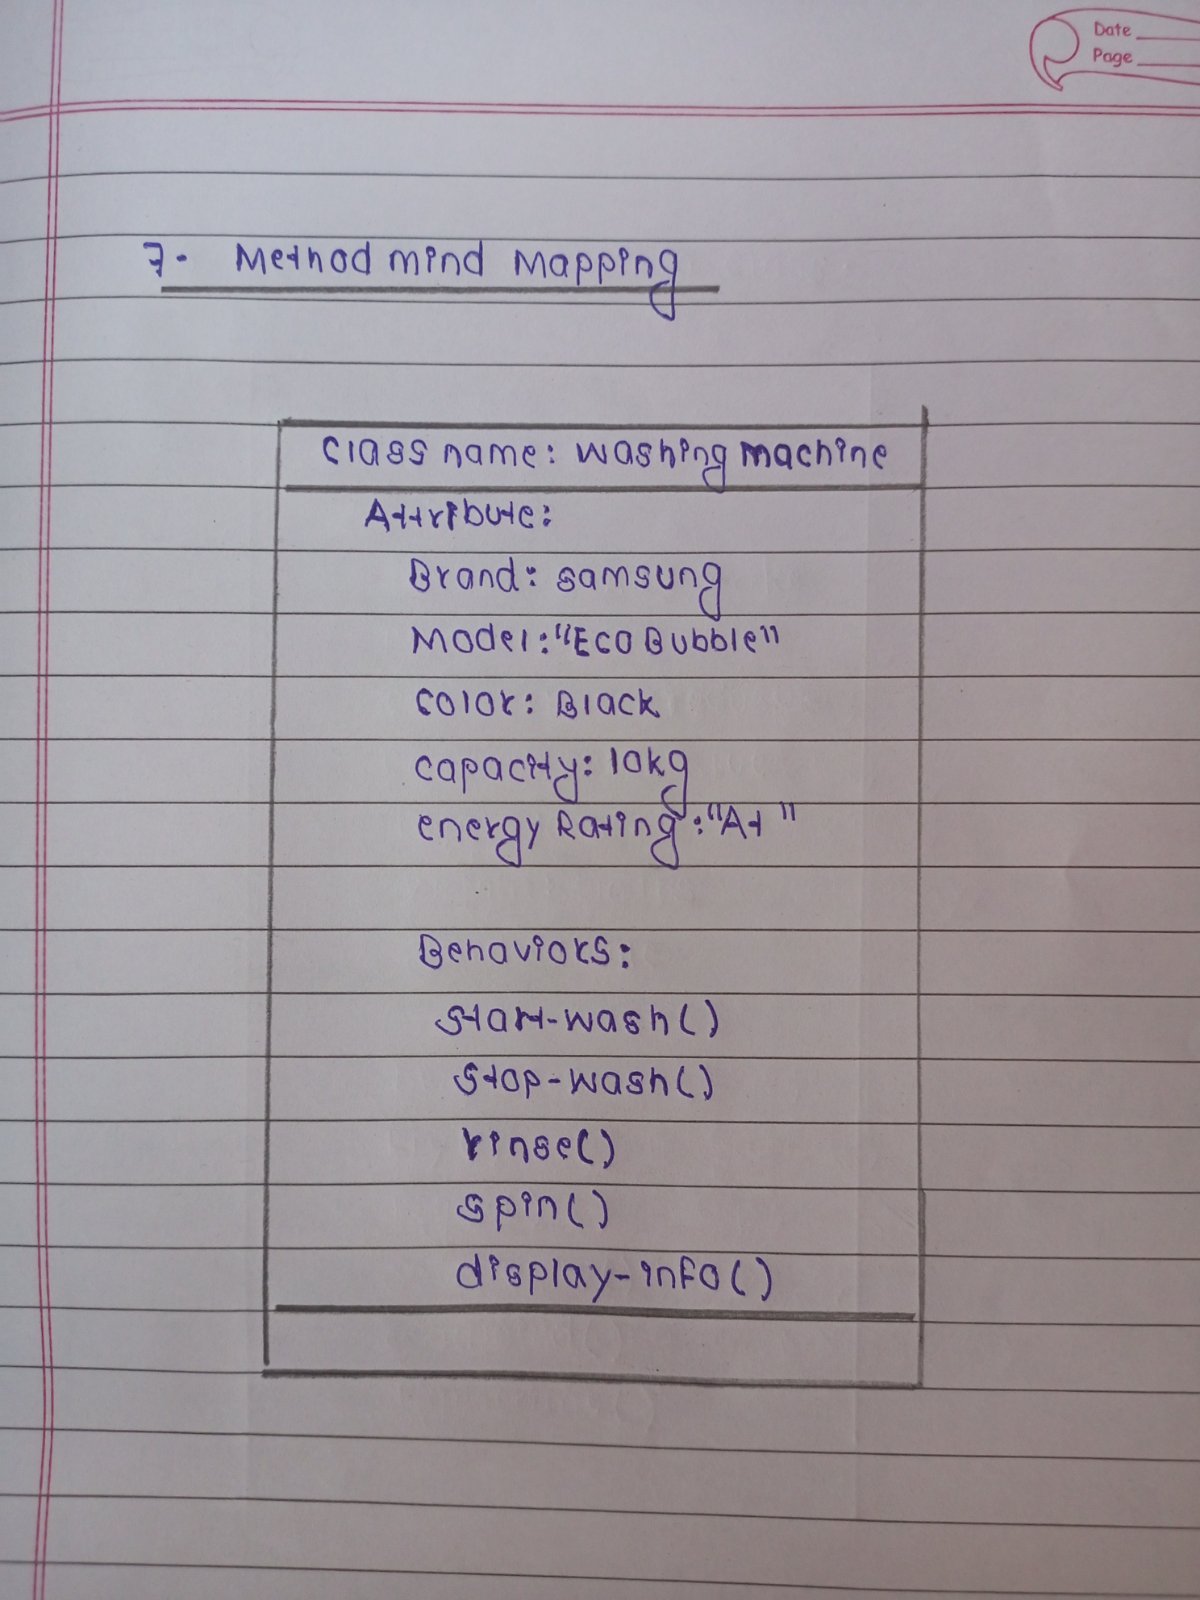 Date
Page
7. Method mind Mapping
Class name: Washing machine
Attribute:
Brand: Samsung
Model: "Eco Bubble"
Color: Black
capacity: 10kg
energy Rating: "A+"
Behaviors:
start-wash()
stop-wash()
rinse()
spin()
display-info()